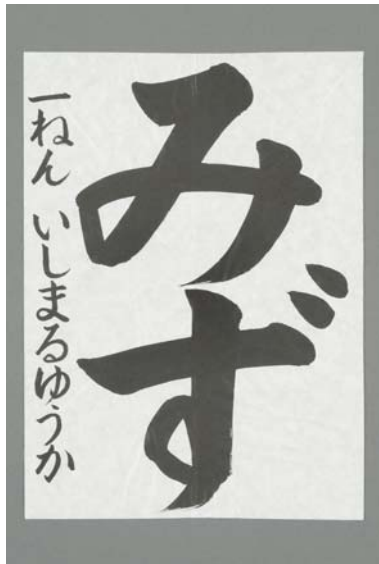 みず
一ねん いしまるゆうか